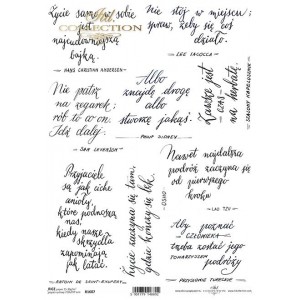 Życie samo w sobie
jest
najcudowniejszą
bajką.
HANS CHRISTIAN ANDERSEN
Nie stój w miejscu;
spraw, żeby się coś
działo.
LEE IACOCCA
ITD
COLLECTION
Nie patrz
na zegarek;
rób to co on.
Idź dalej.
SAM LEVENSON
Albo
znajdę drogę
albo
stworzę jakąś.
PHILIP SIDNEY
Zawsze jest
CZAS
na herbatę.
SZALONY KAPELUSZNIK
Przyjaciele
są jak ciche
anioły,
które podnoszą
nas,
kiedy nasze
skrzydła
zapominają
jak latać.
ANTOINE DE SAINT-EXUPÉRY
Życie zaczyna się tam,
gdzie kończy się lęk.
OSHO
Nawet najdalsza
podróż zaczyna się
od pierwszego
kroku.
LAO TZU
Aby poznać
CZŁOWIEKA
trzeba zostać jego
TOWARZYSZEM
podróży.
PRZYSŁOWIE TURECKIE